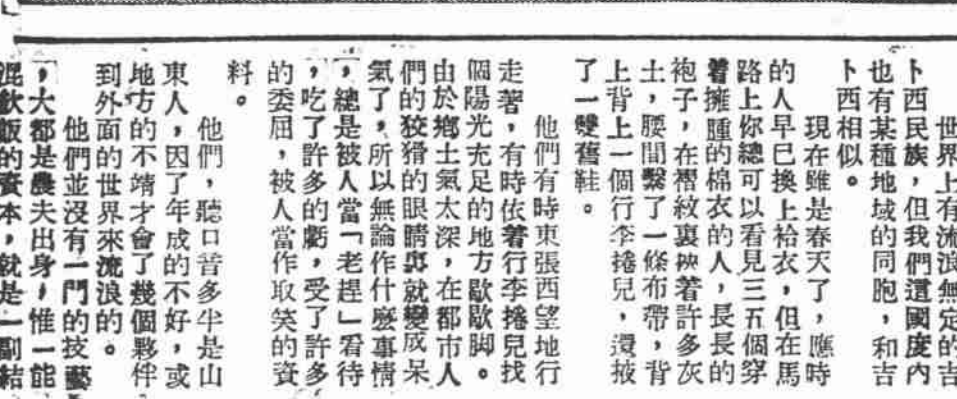 世界上有流浪無定的吉
卜西民族，但我們這國度內
也有某種地域的同胞，和吉
卜西相似。
現在雖是春天了，應時
的人早已換上袷衣，但在馬
路上你總可以看見三五個穿
着擁腫的棉衣的人，長長的
袍子，在褶紋裏袂着許多灰
土，腰間繫了一條布帶，背
上背上一個行李捲兒，還掖
了一雙舊鞋。
他們有時東張西望地行
走著，有時依着行李捲兒找
個陽光充足的地方歇歇脚。
由於鄉土氣太深，在都市人
們的狡猾的眼睛裏就變成呆
氣了，所以無論作什麼事情
，總是被人當「老趕」看待
，吃了許多的虧，受了許多
的委屈，被人當作取笑的資
料。
他們，聽口音多半是山
東人，因了年成的不好，或
地方的不靖才會了幾個夥伴
到外面的世界來流浪的。
他們並沒有一門的技藝
，大都是農夫出身，惟一能
混飲飯的資本，就是一副結